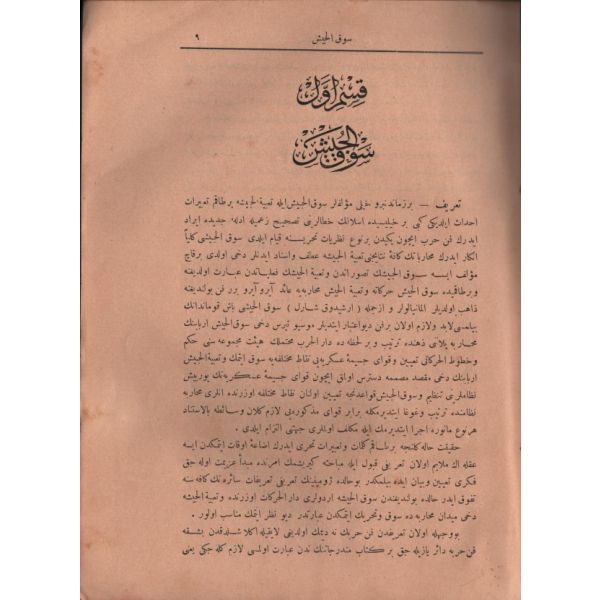 سوق الجيش ٩
قسم اول
سوق الجيش
تعريف — برزماندنبرو خيلى مؤلفلر سوق الجيش ايله تعبية الجيشه برطاقم تعبيرات
احداث ايلديكى كبى بر خيليسيده اسلافك خطالرينى تصحيح زعميله ادلهٔ جديده ايراد
ايدرك فن حرب ايچون يكيدن برنوع نظريات تحريسنه قيام ايلدى سوق الجيشى كلياً
انكار ايدرك محارباتك كافهٔ نتايجنى تعبية الجيشه عطف واسناد ايدنلر دخى اولدى برقاچ
مؤلف ايسه سوق الجيشك تصوراتدن وتعبية الجيشك فعلياتدن عبارت اولديغنه
وبرطاقميده سوق الجيش حركاته وتعبية الجيش محاربه يه عائد آيرو آيرو برر فن بولنديغنه
ذاهب اولديلر المانيالولر و ازجمله ( ارشيدوق شارل ) سوق الجيشى باش قوماندانك
بيلمسى لابد ولازم اولان برفن ديو اعتبار ايتديلر موسيو تيرس دخى سوق الجيش اربابنك
محاربه پلاننى ذهنده ترتيب و بر لحظه ده دار الحرب محتملك هيئت مجموعه سنى حكم
وخطوط الحركاتى تعيين وقواى جسيمهٔ عسكريه يى نقاط مختلفه يه سوق ايتمك وتعبية الجيش
اربابنك دخى مقصد مصممه دسترس اولمق ايچون قواى جسيمهٔ عسكريه نك يورييش
نظاملرينى تنظيم وسوق الجيش قواعدنجه تعيين اولنان نقاط مختلفه اوزرنده انلرى محاربه
نظامنده ترتيب وغوغا ايتديرمكله برابر قواى مذكوره يى لازم كلان وسائطه بالاستناد
هرنوع مانوره اجرا ايتديرمك ايله مكلف اولملرى جهتنى التزام ايلدى .
حقيقت حاله كلنجه برطاقم كلمات وتعبيرات تحرى ايدرك اضاعهٔ اوقات ايتمكدن ايسه
عقله ك ملايم اولان تعريفى قبول ايله مباحثه كيريشمك امرنده مبدأ عزيمت اوله جق
فكرى تعيين وبيان ايده بيلمكدر بوحالده ژومينينك تعريفى تعريفات سائره نك كافه سنه
تفوق ايدر حالده بولنديغندن سوق الجيشه اردولرى دار الحركات اوزرنده وتعبية الجيشه
دخى ميدان محاربه ده سوق وتحريك ايتمكدن عبارتدر ديو نظر ايتمك مناسب اولور .
بووجهله اولان تعريفدن فن حربك نه ديمك اولديغى لايقيله اكلاشلديغندن بشقه
فن حربه دائر يازيله جق بر كتاب مندرجاتنك ندن عبارت اولمسى لازم كله جكى يعنى